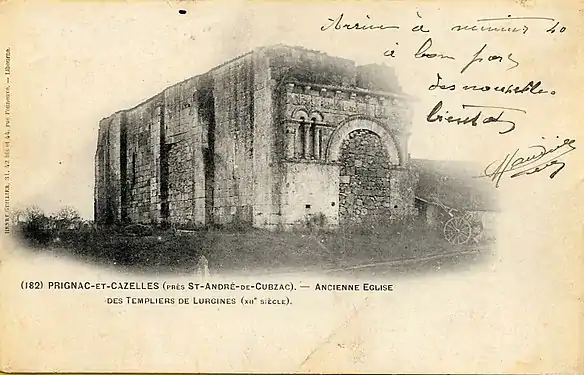 Arrivée à minuit 40
à bon port
des nouvelles
bientôt
HENRY GUILLIER, 31, 42 bis et 44, rue Fonneuve. — Libourne.
(182) PRIGNAC-ET-CAZELLES (PRÈS ST-ANDRÉ-DE-CUBZAC). — ANCIENNE EGLISE
DES TEMPLIERS DE LURGINES (XIIe SIÈCLE).